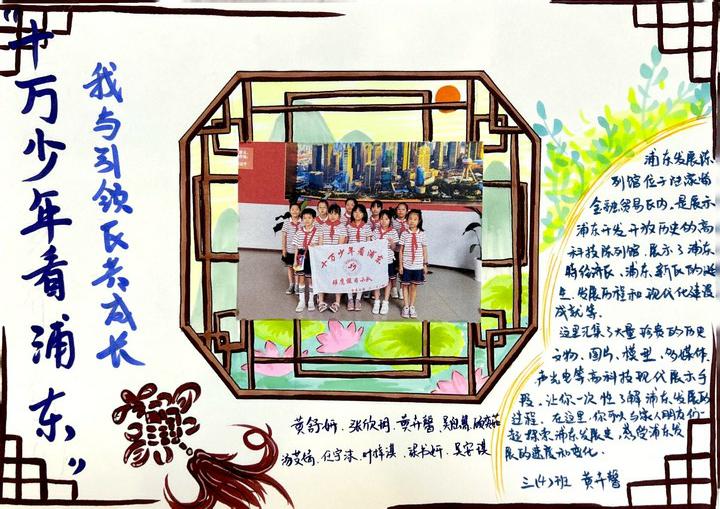 “十万少年看浦东”
我与引领区共成长
十万少年看浦东
浦东发展陈
列馆位于陆家嘴
金融贸易区内,是展示
浦东开发开放历史的高
科技陈列馆。展示了浦东
的经济区、浦东新区的诞
生、发展历程和现代化建设
成就等。
这里汇集了大量珍贵的历史
文物、图片、模型、多媒体、
声光电等高科技现代展示手
段,让你一次性了解浦东发展的
过程。在这里,你可以与家人朋友们一
起探索浦东发展史,感受浦东发
展的速度和变化。
三(4)班 黄卉馨
黄舒妍、张欣玥、黄卉馨、
吴安琪